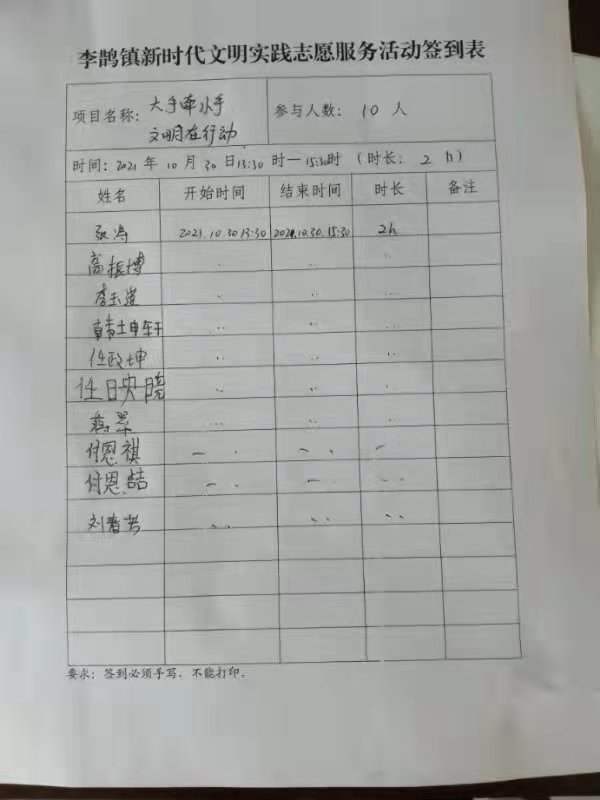 李鹊镇新时代文明实践志愿服务活动签到表
项目名称: 大手牵小手
文明在行动
参与人数: 10 人
时间: 2021 年 10 月 30 日 13:30 时一 15:30时 (时长: 2 h)
姓名 开始时间 结束时间 时长 备注
张涛 2021.10.30 13:30 2021.10.30.15:30 2h
高振博 .. .. ..
李玉岩 .. .. ..
.. .. ..
任政坤 .. .. ..
任映晓 .. .. ..
.. .. ..
付恩祺
付恩喆
刘春芳 .. .. ..
要求: 签到必须手写, 不能打印。